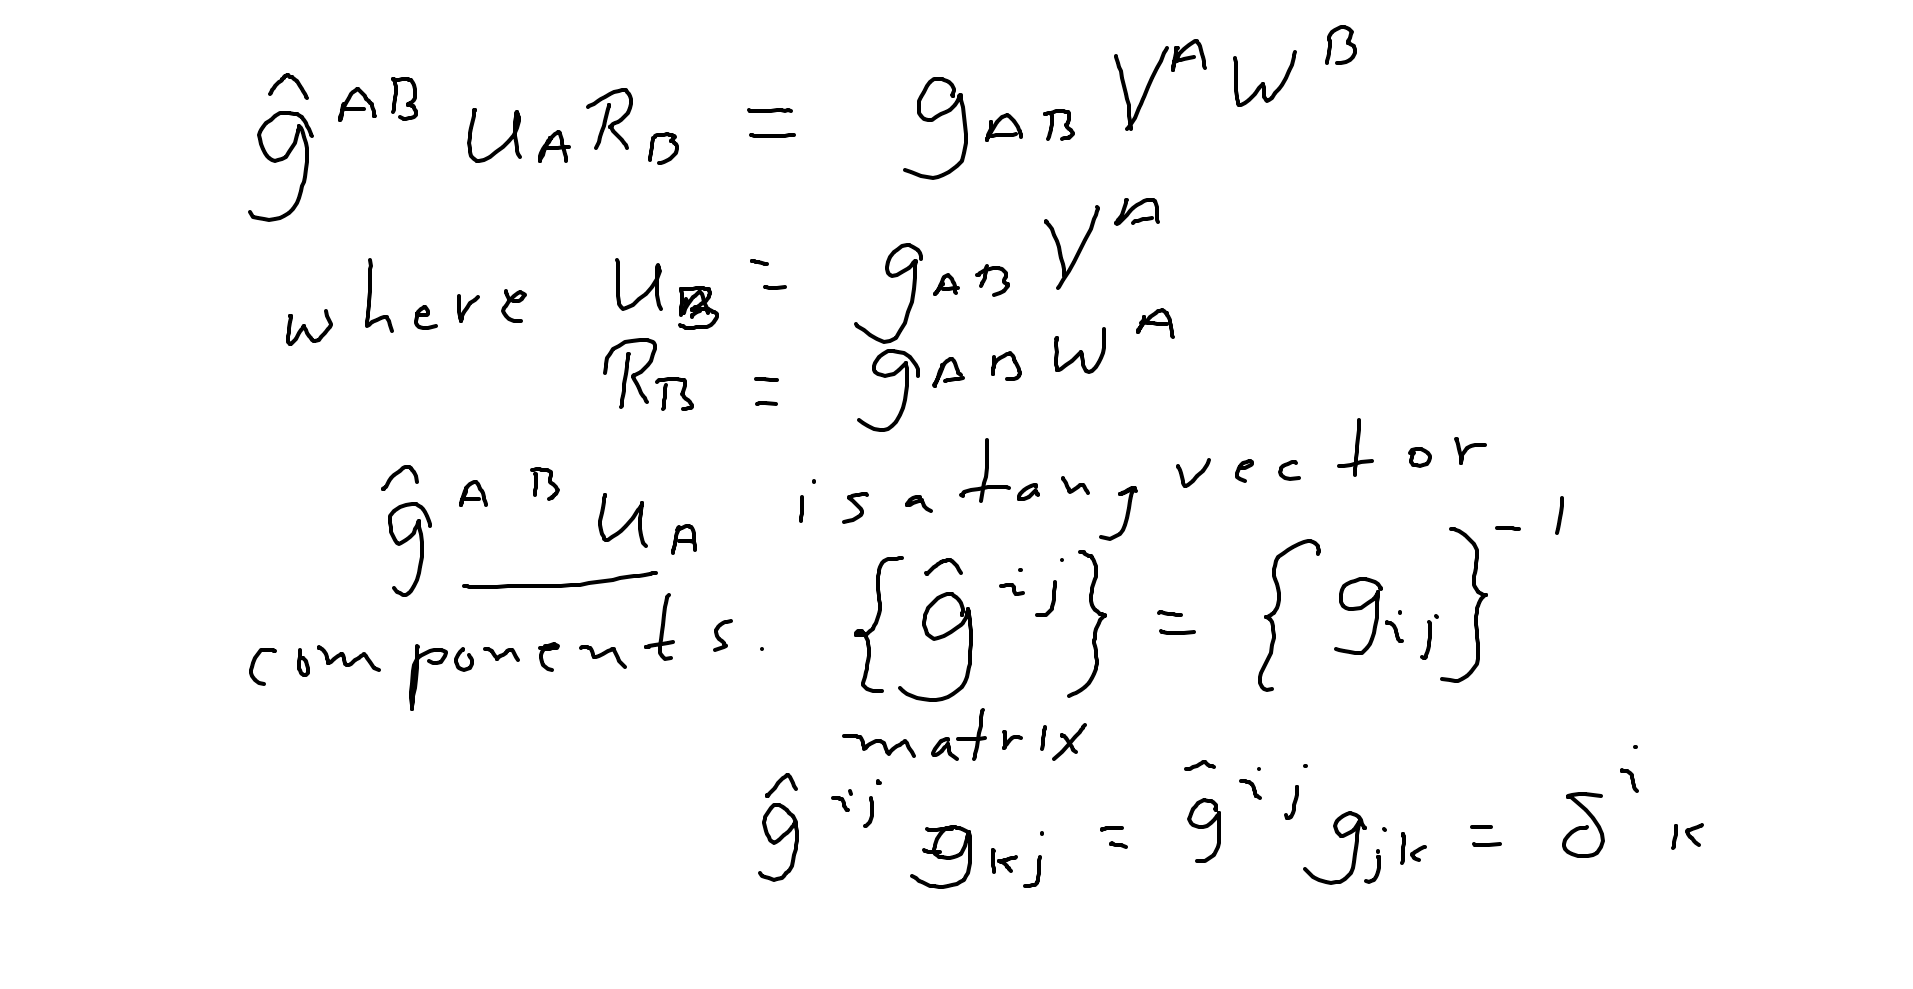 ĝ^{AB} U_A R_B = g_{AB} V^A W^B
where U_B = g_{AB} V^A
R_B = g_{AB} W^A
ĝ^{AB} U_A is a tang vector
components. {ĝ^{ij}} = {g_{ij}}^{-1}
matrix
ĝ^{ij} g_{kj} = ĝ^{ij} g_{jk} = δ^i_k